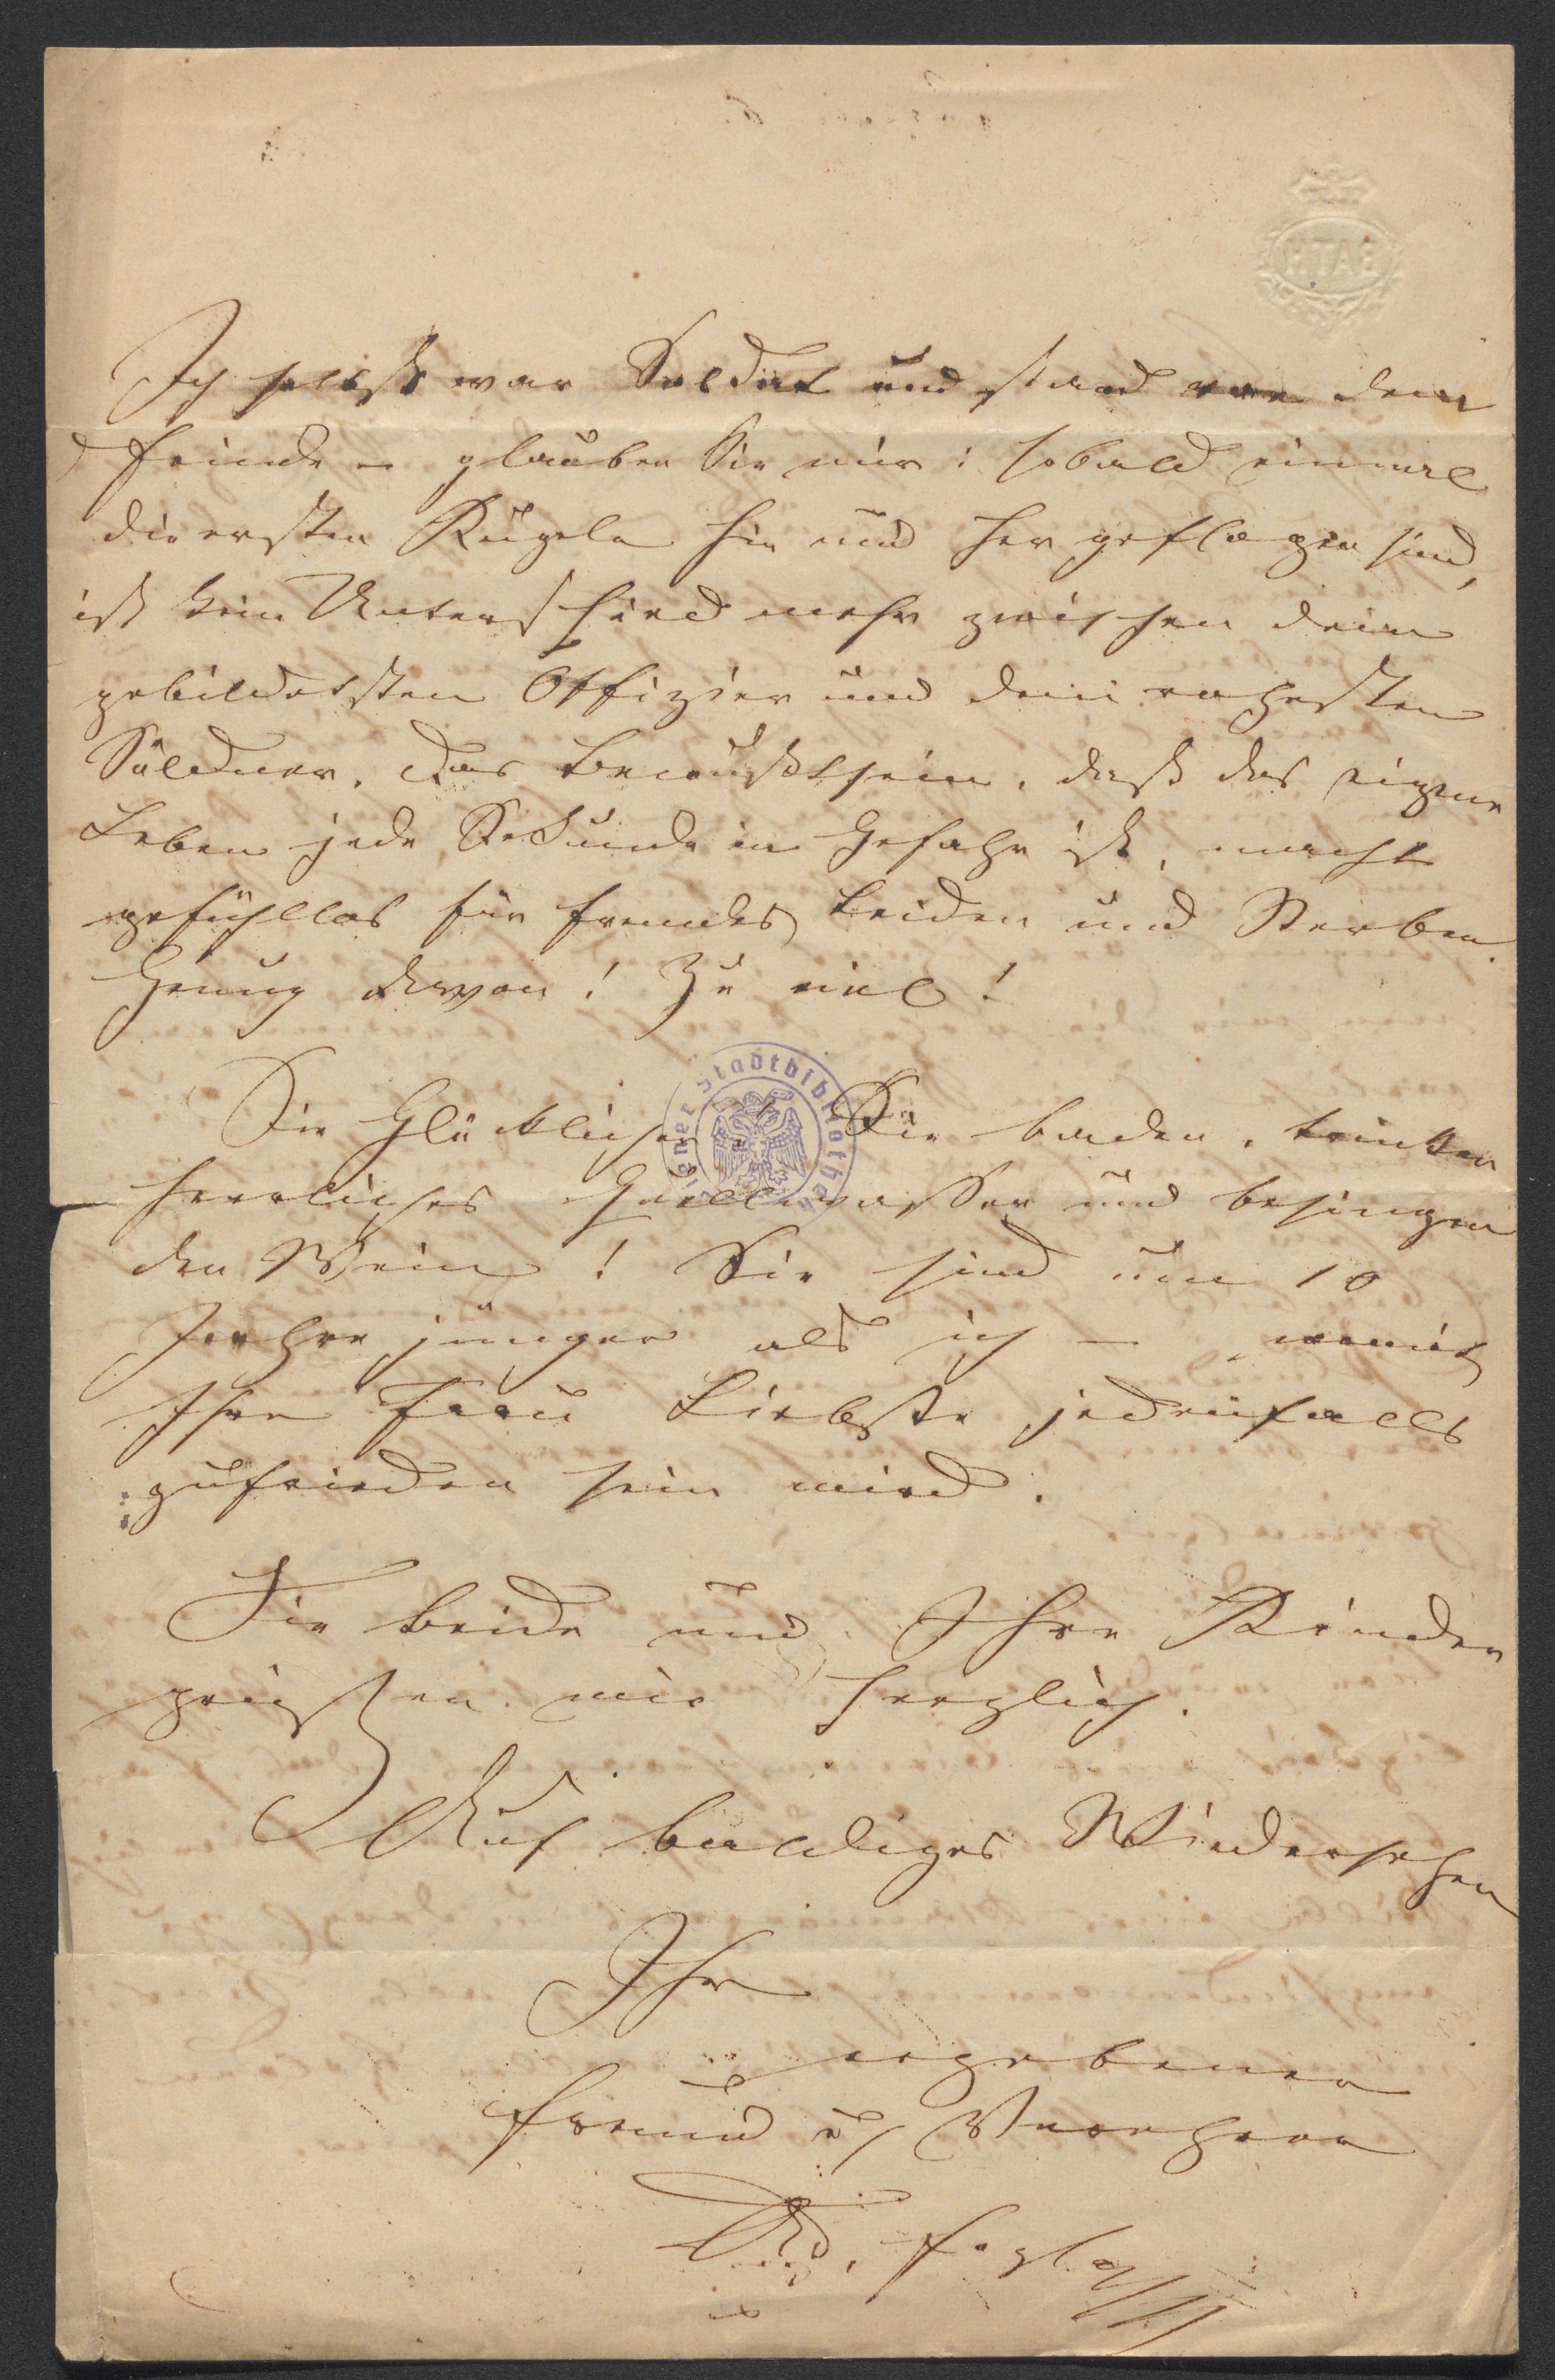 BATH
Ich selbst war Soldat und stand vor dem
Feinde – glauben Sie mir: sobald einmal
die ersten Kugeln hin und her geflogen sind,
ist kein Unterschied mehr zwischen dem
gebildetsten Offizier und dem rohesten
Söldner. Das Bewußtsein, daß das eigene
Leben jede Sekunde in Gefahr ist, macht
gefühllos für fremdes Leiden und Sterben.
Genug davon! Zu viel!
Wiener Stadtbibliothek
Sie Glücklicher! Sie baden, trinken
herrliches Quellwasser und besingen
den Wein! Sie sind um 10
Jahre jünger als ich – womit
Ihre Frau Liebste jedenfalls
zufrieden sein wird.
Sie beide und Ihre Kinder
grüßen wir herzlich.
Auf baldiges Wiedersehen
Ihr
ergebener
Freund u Verehrer